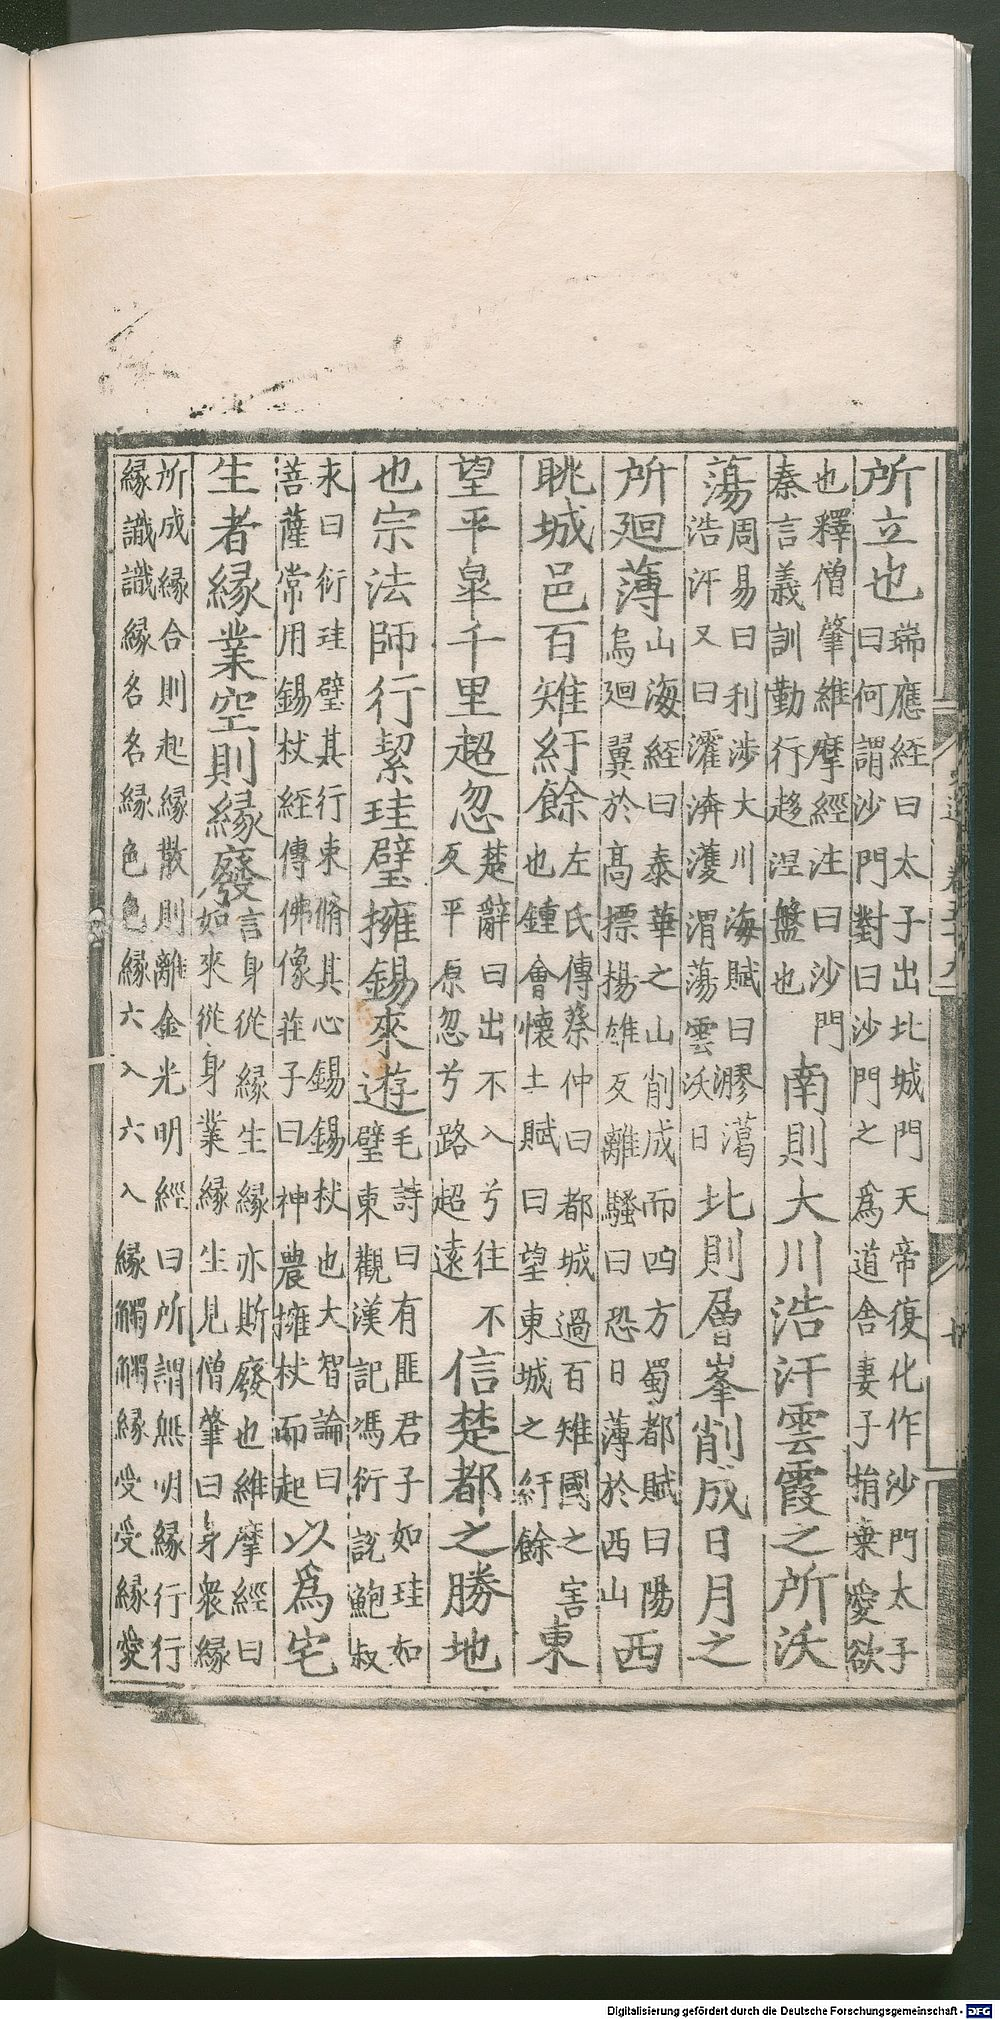 所立也瑞應経曰太子出北城門天帝復化作沙門太子
曰何謂沙門對曰沙門之爲道舎妻子捐棄愛欲
也釋僧肇維摩經注曰沙門
秦言義訓勤行趍涅盤也南則大川浩汗雲霞之所沃
蕩周易曰利渉大川海賦曰
浩汗又曰濯濩渭蕩雲沃日北則層峯削成日月之
所廻薄山海経曰泰華之山削成而四方蜀都賦曰陽
烏廻翼於髙摽揚雄反離騷曰恐日薄於西山西
眺城邑百雉紆餘左氏傳蔡仲曰都城過百雉國之害
也鍾會懷土賦曰望東城之紆餘東
望平皐千里超忽楚辭曰出不入兮往不
反平原忽兮路超遠信楚都之勝地
也宗法師行絜珪璧擁錫來遊毛詩曰有匪君子如珪如
璧東觀漢記馮衍說鮑叔
求曰衍珪璧其行束脩其心錫錫杖也大智論曰
菩薩常用錫杖経傳佛像莊子曰神農擁杖而起以爲宅
生者緣業空則緣廢言身從緣生緣亦斯廢也維摩經曰
如來從身業緣生見僧肇曰身衆緣
所成緣合則起緣散則離金光明經曰所謂無明緣行行
緣識識緣名名緣色色緣六入六入緣觸觸緣受受緣愛
Digitalisierung gefördert durch die Deutsche Forschungsgemeinschaft - DFG